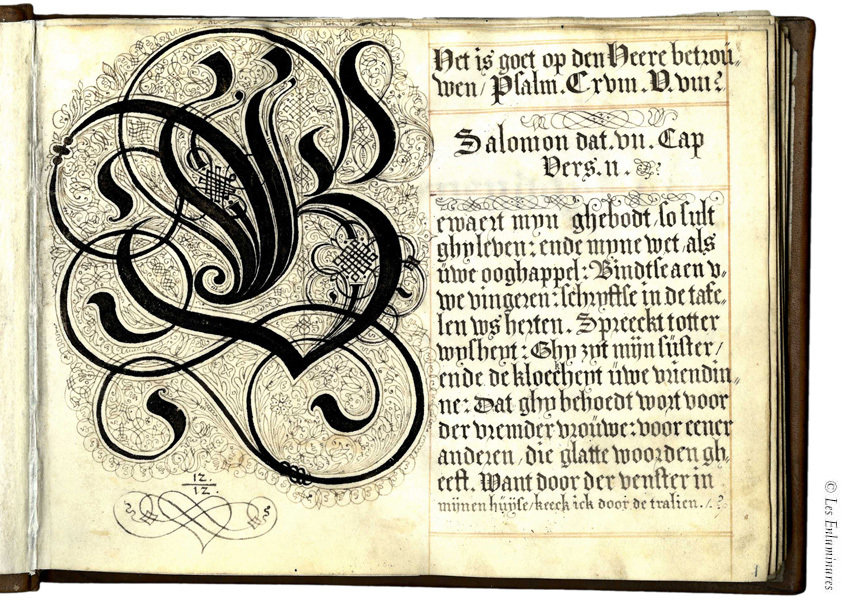 B
12.
12.
Het is goet op den Heere betroü„
wen / Psalm. Cxvııı. V. vııı?
Salomon dat. vıı. Cap
Vers. ıı.
ewaert myn ghebodt / so sult
ghy leven: ende myne wet / als
üwe ooghappel: Bindtse aen v„
we vingeren: schryftse in de tafe„
len vws herten. Spreeckt totter
wysheyt: Ghy zyt mijn süster /
ende de kloecheyt üwe vriendin„
ne: Dat ghy behoedt wort voor
der vremder vroüwe: voor eener
anderen / die glatte woorden gh„
eeft. Want door der venster in
mijnen hüÿse / keeck ick door de tralien./.?
1
© Les Enluminures